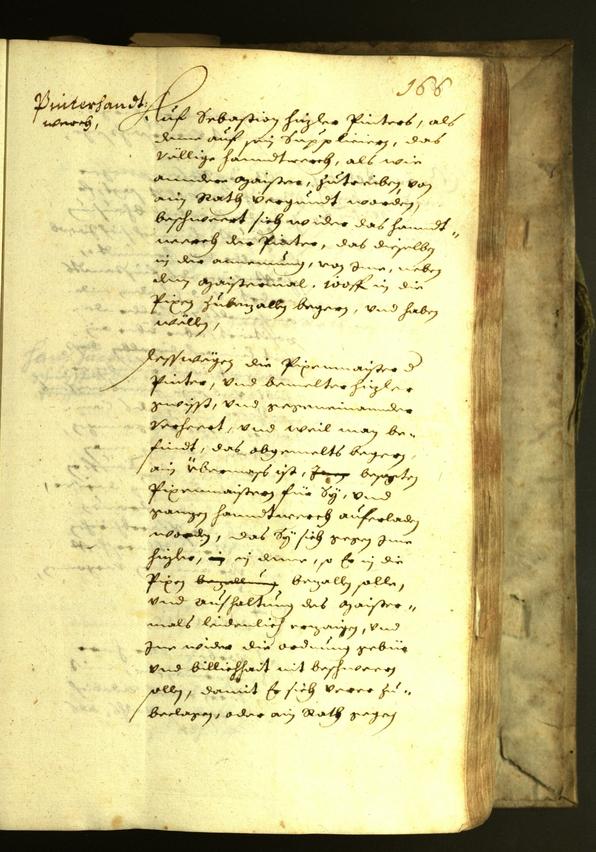 166
Pinterhandt:
werch,
Auf Sebastian Huzler Pinters, als
deme auf sein Supplicirn, das
völlige Hanndtwerch, als wie
anndere Maister, zutreiben, von
ain Rath vergundt worden,
beschwert sich wider das Hanndt-
werch der Pinter, das dieselben
in der annemung, von Ime, neben
dem Maistermal, in die
Pixen zubezallen begern, und haben
wellen,
Desswegen die Pixenmaister d
Pinter, und bemelter Huzler
gewisst, und gegeneinannder
verhoert, und weil man be-
findt, das obgemelts begern,
ain Übermass ist, besagten
Pixenmaistern für Sy, und
ganzen Hanndtwerch auferladen
worden, das Sy sich gegen Ime
Huzler, in deme, so Er in die
Pixen bezallung bezallen solle,
und aushaltung des Maister-
mals leidenlich erzaigen, und
Ine wider die ordnung gebür
und billichhait nit beschwern
sollen, damit Er sich verer zu-
beclagen, oder ain Rath gegen